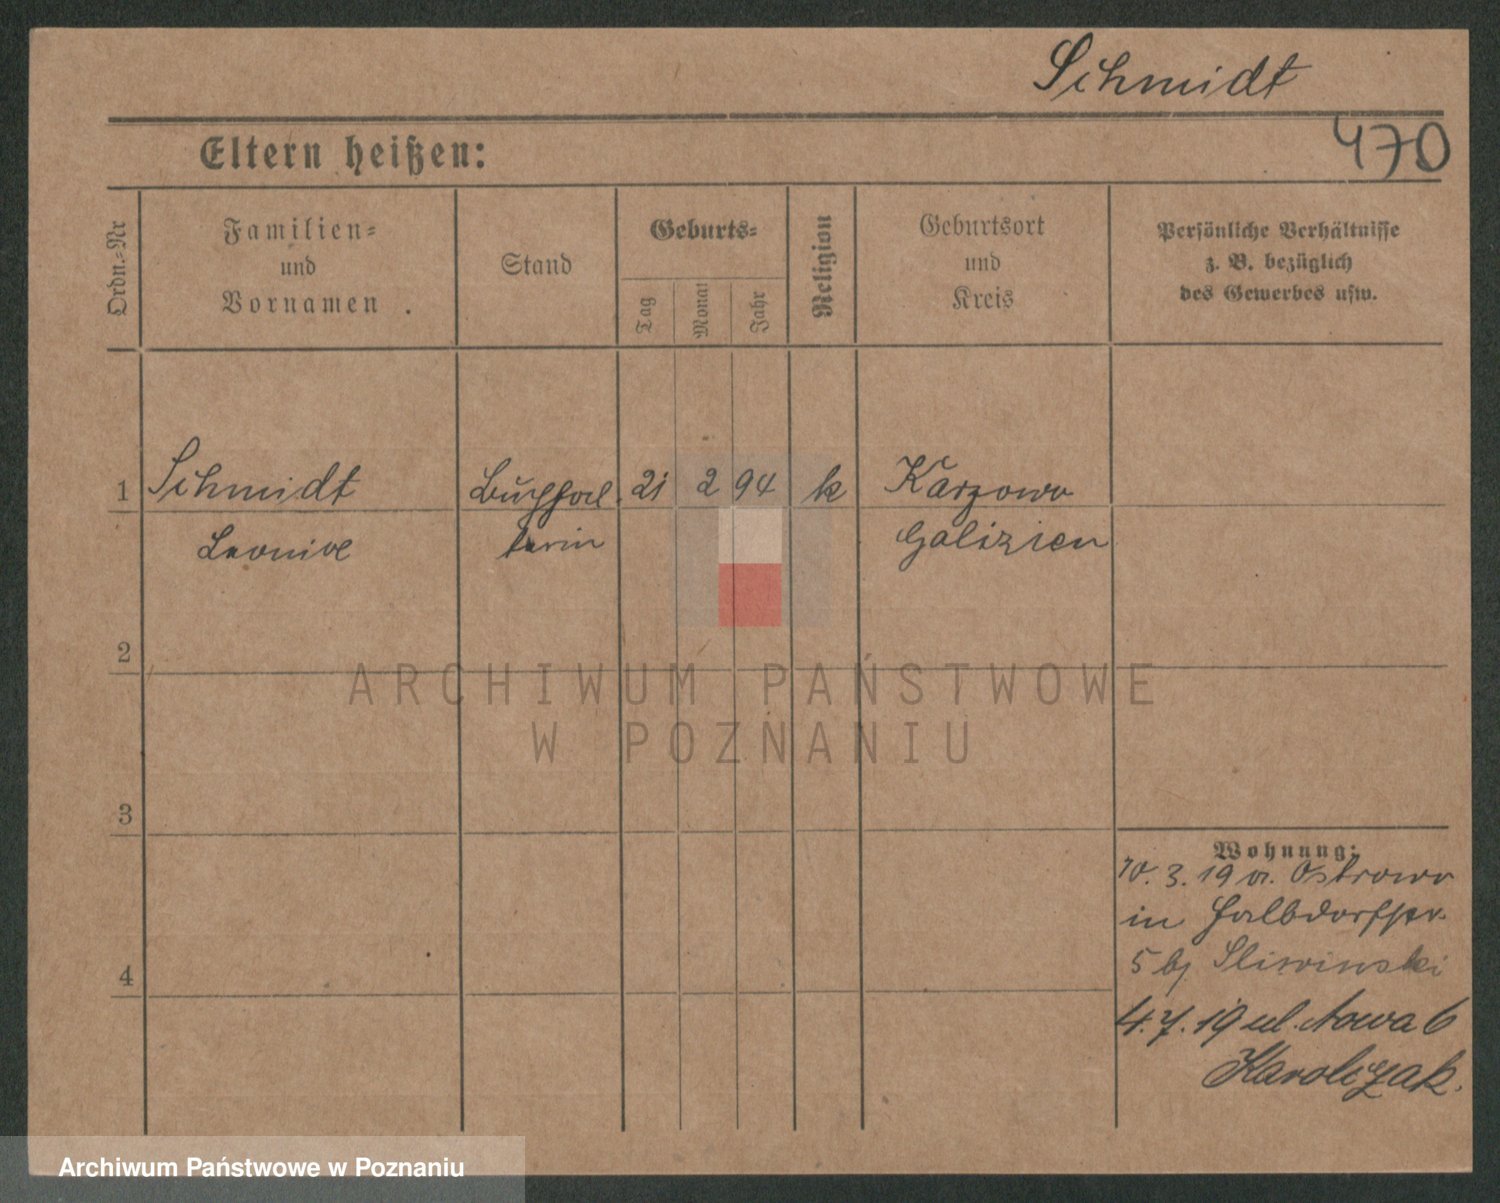 Schmidt
470
Eltern heißen:
Ordn.-Nr
Familien-
und
Vornamen
Stand
Geburts-
Tag
Monat
Jahr
Religion
Geburtsort
und
Kreis
Persönliche Verhältnisse
z. B. bezüglich
des Gewerbes usw.
1 Schmidt Buchhal 21 2 94 k Karzowo
Leonie terin Galizien
2
3
4
Wohnung:
10. 3. 19 a. Ostrowo
in Halbdorfstr.
5 bj Sliwinski
4. 7. 19 ul. Nowa 6
Karolczak.
ARCHIWUM PAŃSTWOWE
W POZNANIU
Archiwum Państwowe w Poznaniu